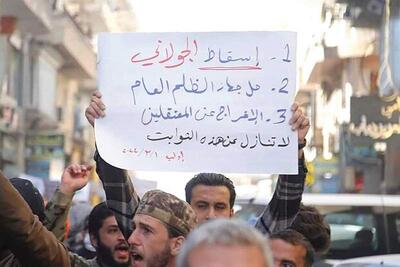 1 - إسقاط الجولاني
2 - حل جهاز الظلم العام
3 - الإفراج عن المعتقلين
لا تنازل عن هذه الثوابت
إدلب ٢٠٢٤/٣/١